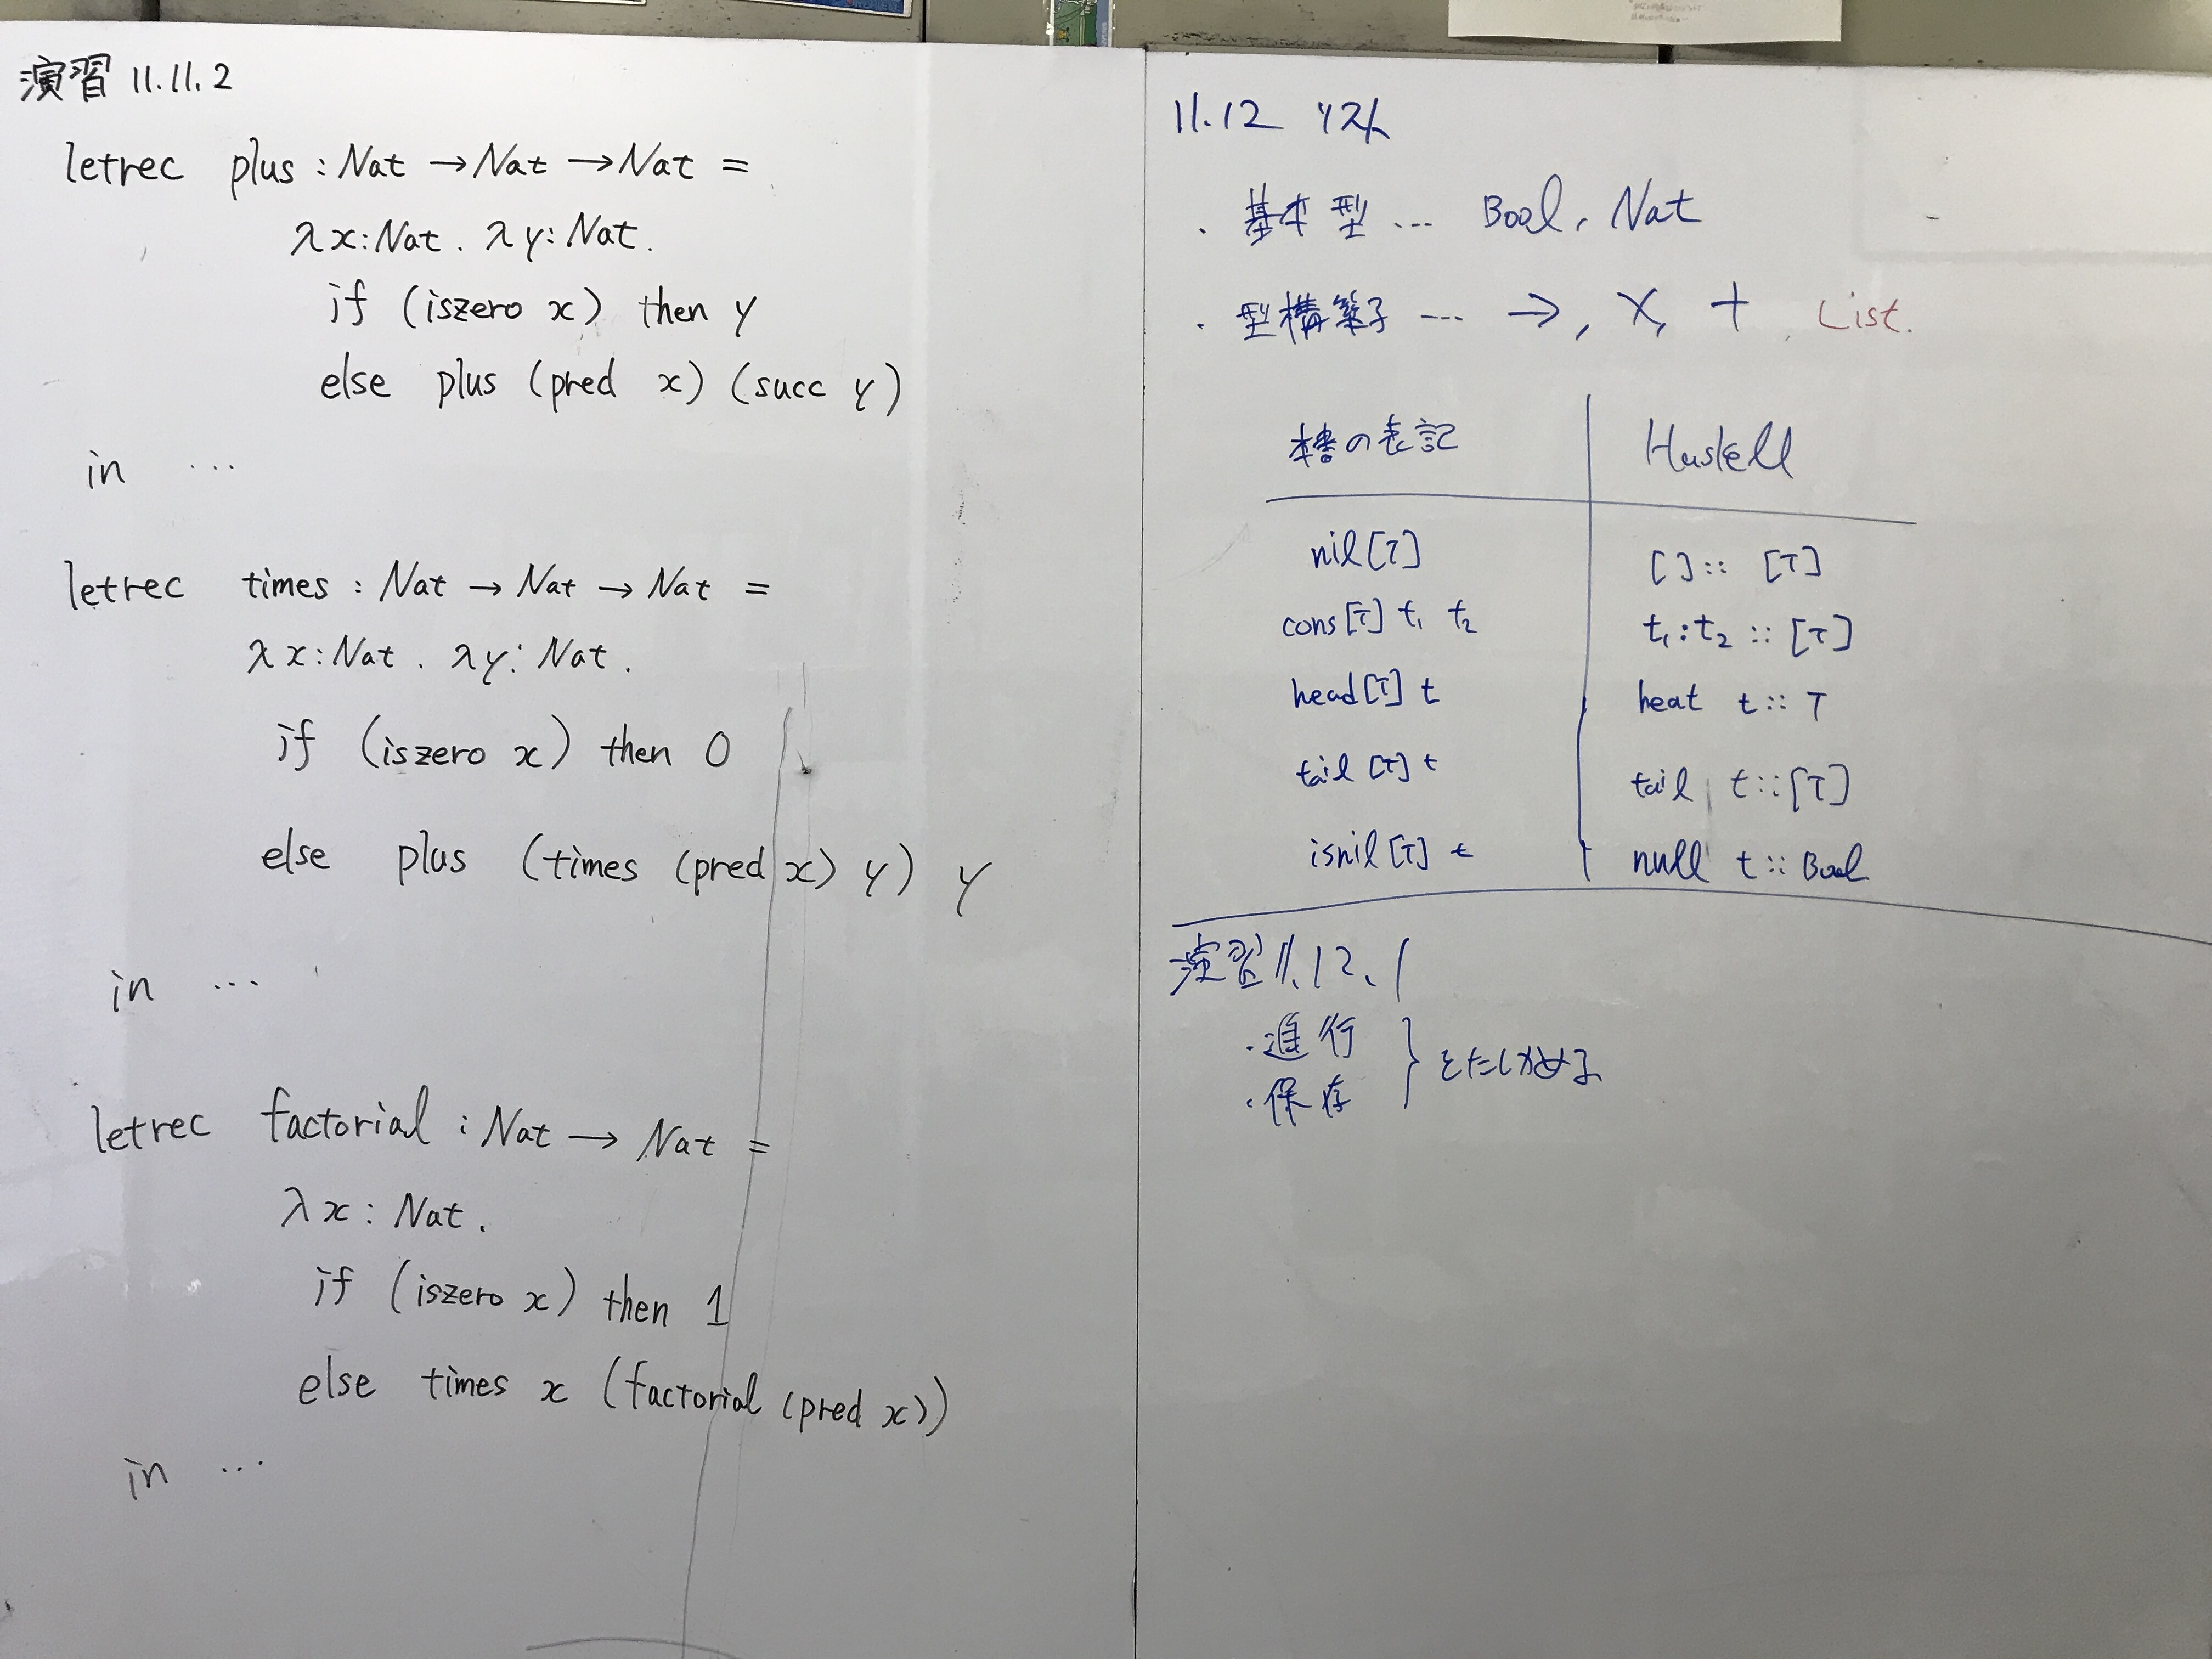 演習 11.11.2
letrec plus : Nat → Nat → Nat =
λx:Nat. λy:Nat.
if (iszero x) then y
else plus (pred x) (succ y)
in ...
letrec times : Nat → Nat → Nat =
λx:Nat. λy:Nat.
if (iszero x) then 0
else plus (times (pred x) y) y
in ...
letrec factorial : Nat → Nat =
λx:Nat.
if (iszero x) then 1
else times x (factorial (pred x))
in ...
11.12 リスト
・基本型 … Bool, Nat
・型構築子 … →, ×, +, List.
本書の表記 Huskell
nil[T] []:: [T]
cons[T] t₁ t₂ t₁:t₂ :: [T]
head[T] t heat t:: T
tail[T] t tail t::[T]
isnil[T] t null t:: Bool
演習11.12.1
・進行
・保存
}をたしかめる